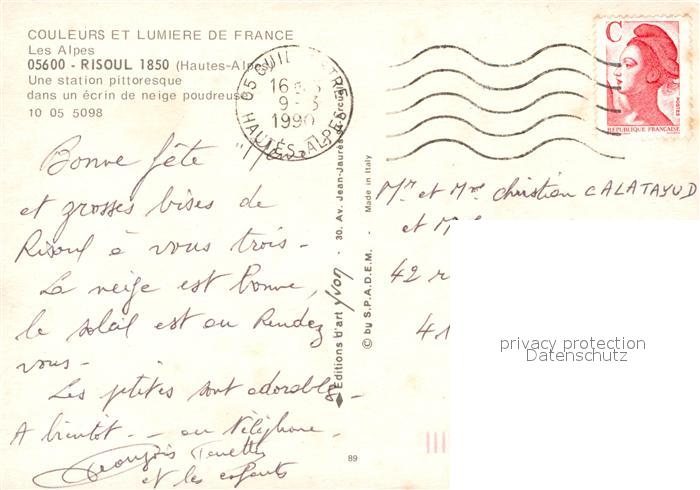 COULEURS ET LUMIERE DE FRANCE
Les Alpes
05600 - RISOUL 1850 (Hautes-Alpes
Une station pittoresque
dans un écrin de neige poudreuse
10 05 5098
05 GUIL TRE
16
9-3
1990
HAUTES-ALPES
C
POSTES
REPUBLIQUE FRANCAISE
Bonne fête
et grosses bises de
Risoul à vous trois -
La neige est bonne,
le soleil est au Rendez
vous -
Les ptites sont adorables -
A bientôt - - au téléphone.
François
et les enfants
Editions d'art yvon - 30. Av. Jean-Jaurès
© by S.P.A.D.E.M. - Made in Italy
89
Mr et Mme Christian CALATAYUD
et
42 r
41
privacy protection
Datenschutz